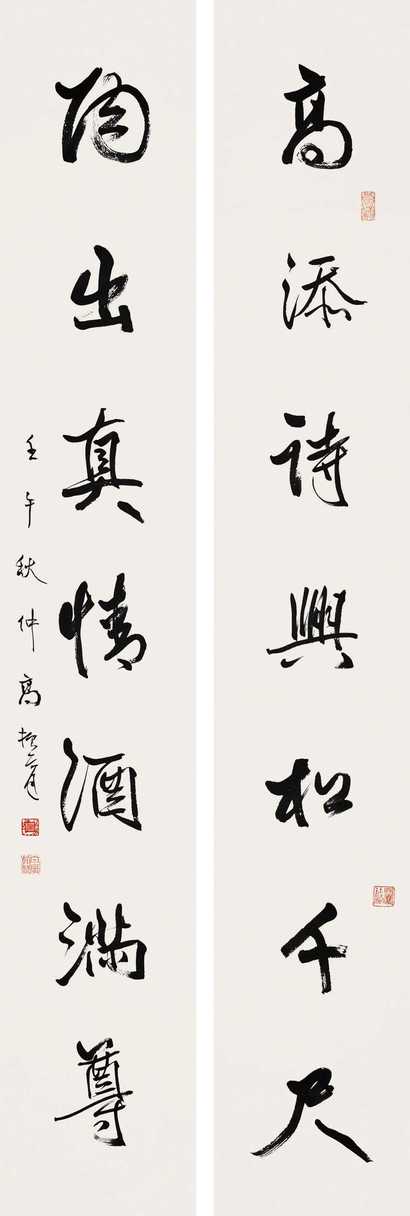 高添詩興松千尺
陶出真情酒滿尊
壬午秋仲高振霄